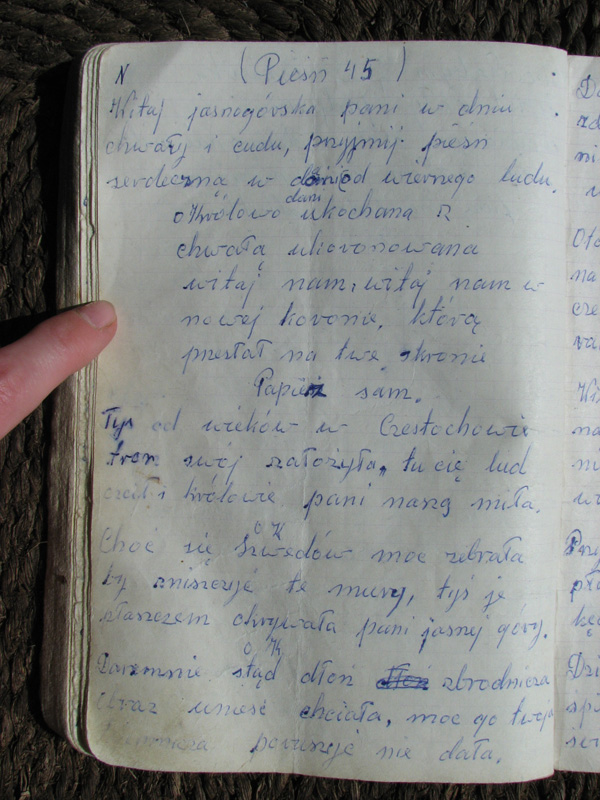 N (Pieśń 45)
Witaj jasnogórska pani w dniu
chwały i cudu, przyjmij pieśń
serdeczną w dani od wiernego ludu.
dani
o Królowo ukochana z
chwałą ukoronowana
witaj nam, witaj nam w
nowej koronie, którą
przesłał na twe skronie
Papież sam.
Tyś od wieków w Częstochowie
tron swój założyła, tu cię lud
czcił i królowie pani naszą miła.
O K
Choć się Szwedów moc zebrała
by zniszczyć te mury, tyś je
płaszczem okrywała pani jasnej góry.
O K
Daremnie stąd dłoń zbrodnicza
Obraz unieść chciała, moc go twoja
poruszyć nie dała.
Do
na
wi